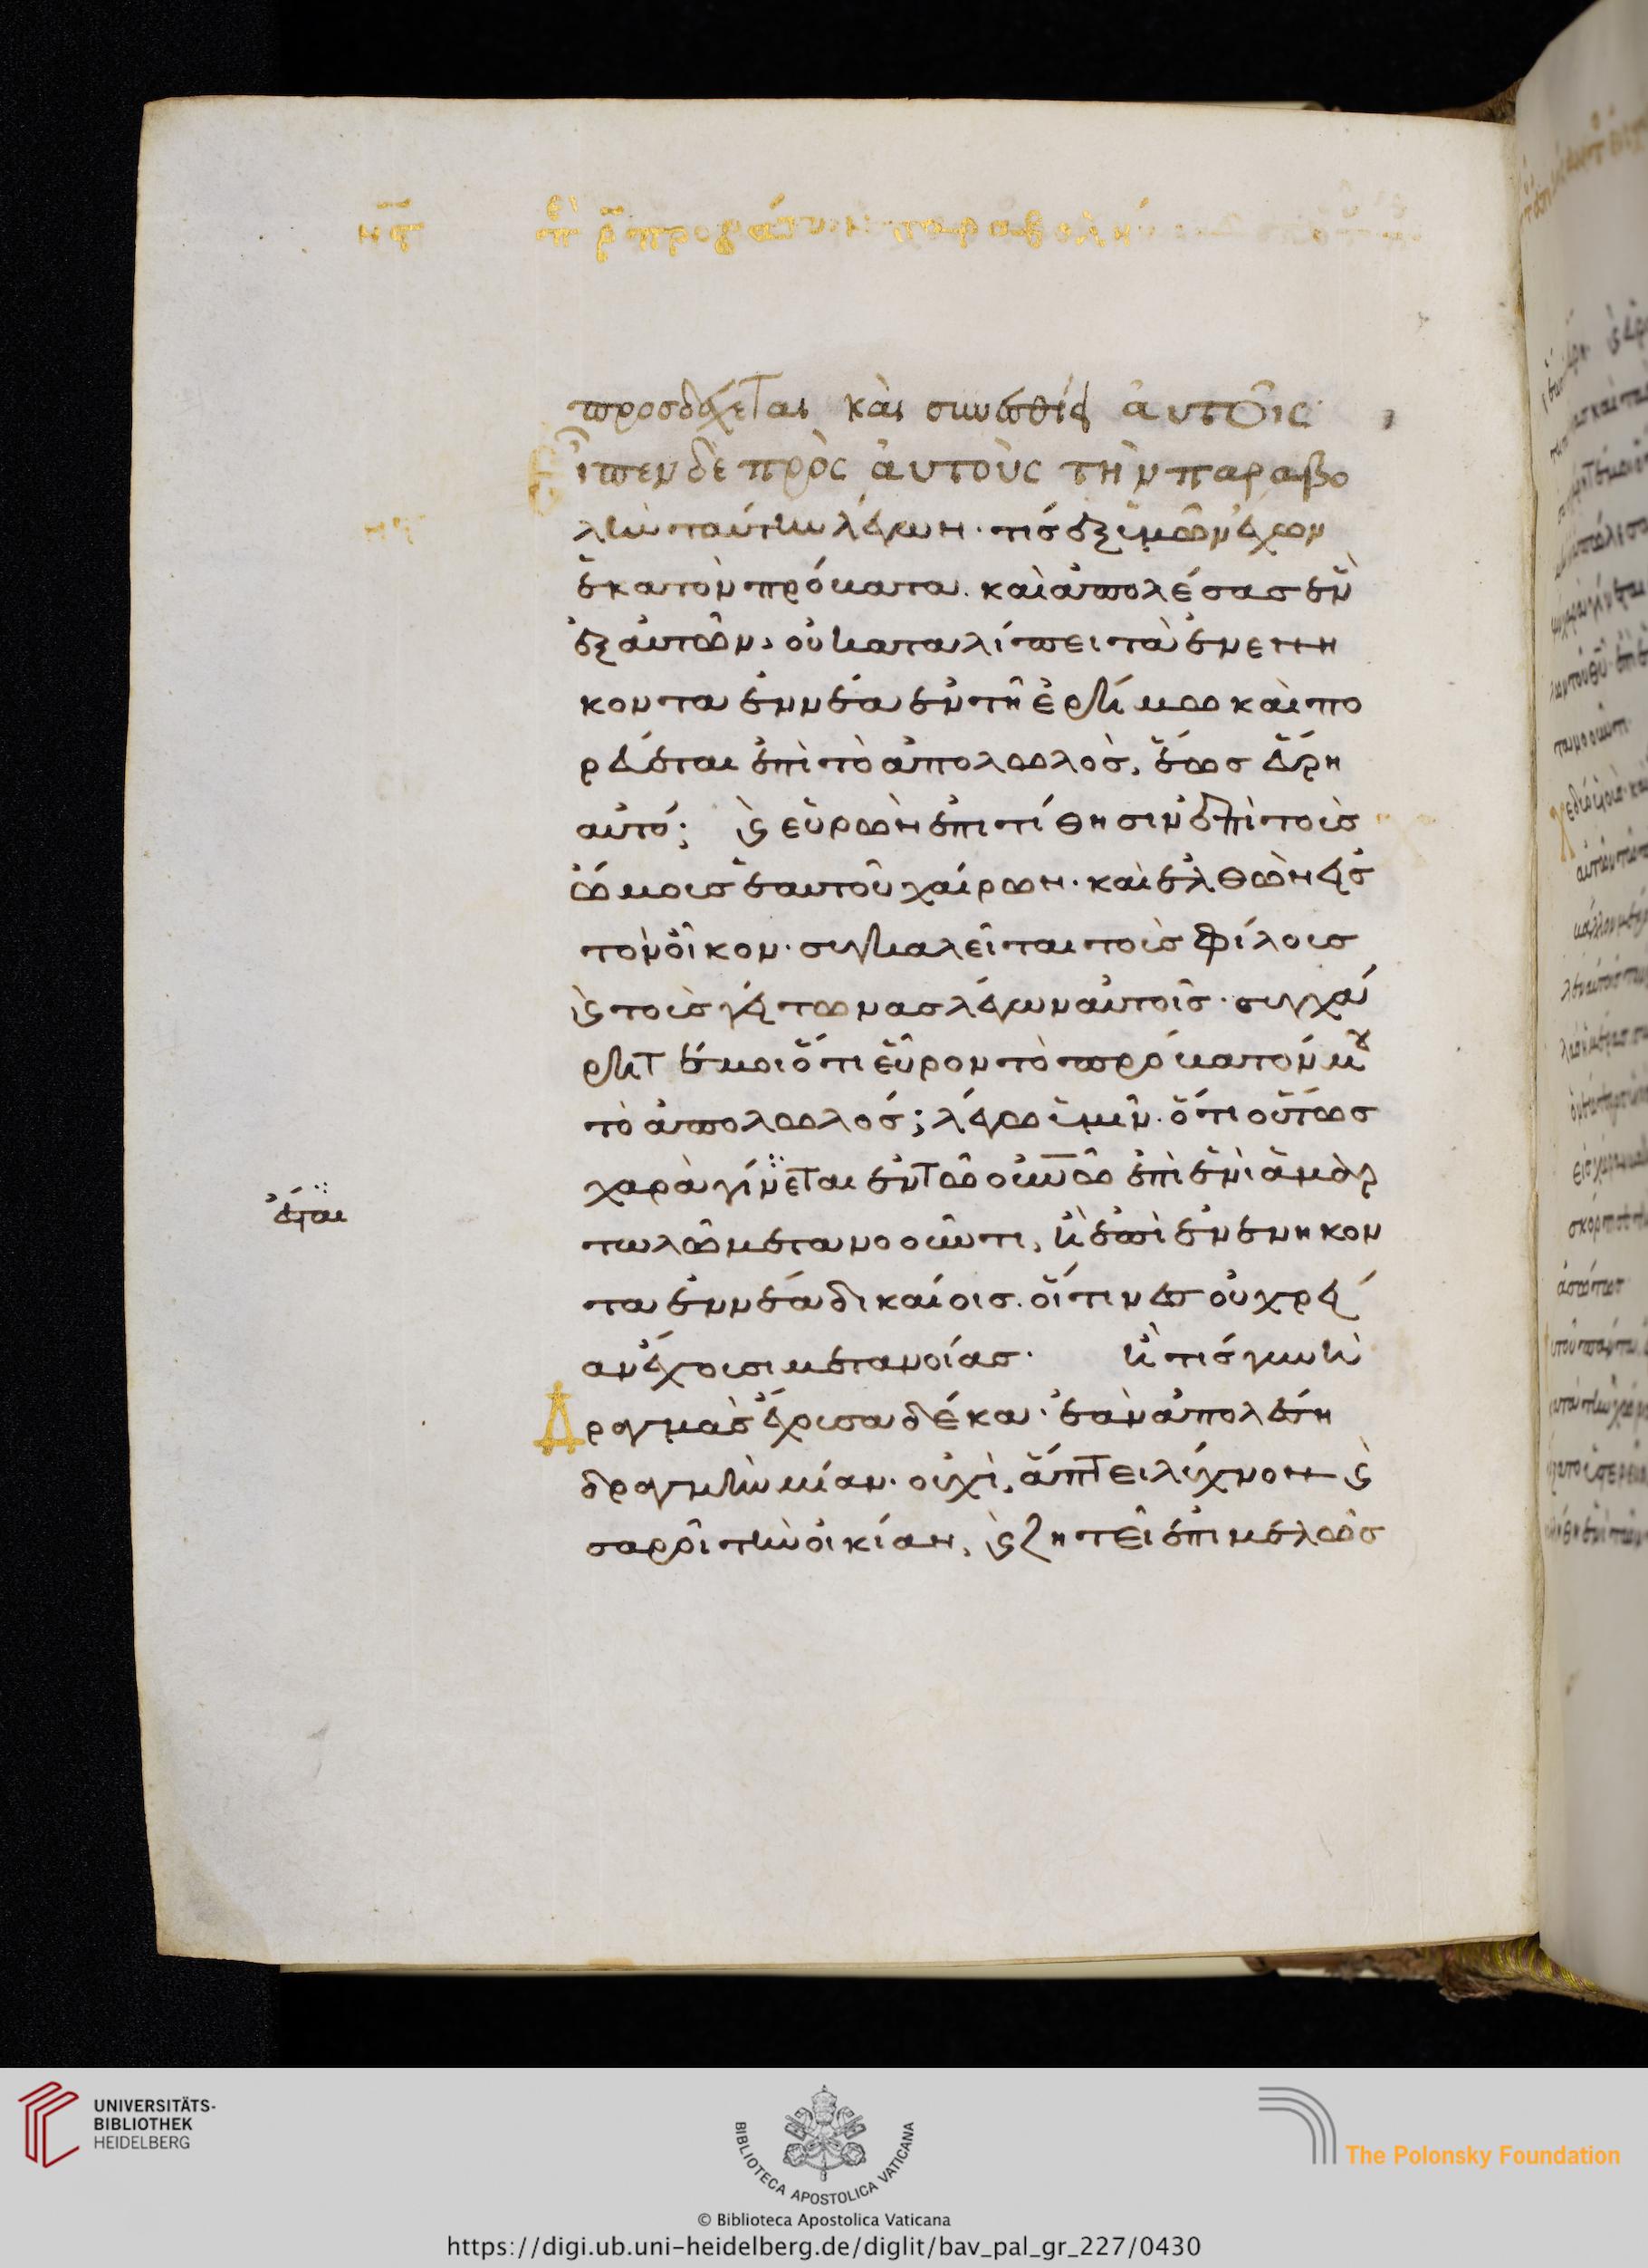 π ρ προβάτων παραβολή
προσδέχεται καὶ συνεσθίει αὐτοῖς
Εἶπεν δὲ πρὸς αὐτοὺς τὴν παραβο
λὴν ταύτην λέγων· τίς ἐξ ὑμῶν ἔχων
ἑκατὸν πρόβατα. καὶ ἀπολέσας ἓν
ἐξ αὐτῶν, οὐ καταλίπει τὰ ἐνενη
κοντα ἐννέα ἐν τῆ ἐρήμω καὶ πο
ρεύεται ἐπὶ τὸ ἀπολωλὸς, ἕως εὕρη
αὐτό; ϗ εὑρὼν ἐπιτίθησιν ἐπὶ τοὺς
ὤμους ἑαυτοῦ χαίρων· καὶ ἐλθὼν εἰς
τὸν οἶκον· συγκαλεῖται τοὺς φίλους
ϗ τοὺς γείτονας λέγων αὐτοῖς· συγχά
ρητέ μοι ὅτι εὗρον τὸ πρόβατόν μου
τὸ ἀπολωλός; λέγω ὑμῖν· ὅτι οὕτως
χαρὰ γίνεται ἐν τῶ οὐνῶ ἐπὶ ἑνὶ ἁμαρ
ἔσται
τωλῶ μετανοοῦντι, ἢ ἐπὶ ἐνενηκον
τα ἐννέα δικαίοις. οἵτινες οὐ χρεί
αν ἔχουσι μετανοίας· ἢ τίς γυνὴ
Δραγμὰς ἔχουσα δέκα· ἐὰν ἀπολέση
δραγμὴν μίαν· οὐχὶ, ἅπτει λύχνον ϗ
σαροῖ τὴν οἰκίαν, ϗ ζητεῖ ἐπιμελῶς
UNIVERSITÄTS-
BIBLIOTHEK
HEIDELBERG
BIBLIOTECA APOSTOLICA VATICANA
The Polonsky Foundation
© Biblioteca Apostolica Vaticana
https://digi.ub.uni-heidelberg.de/diglit/bav_pal_gr_227/0430